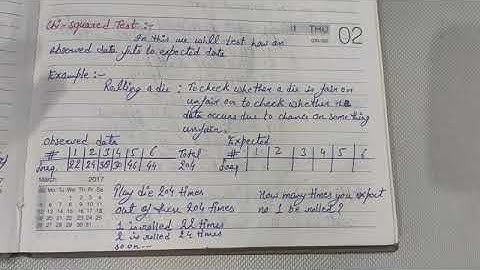 Chi-Squared Test :-
11 THU 02
In this we will test how an
observed data fits to expected data
Example :-
Rolling a die : To check whether a die is fair or
unfair or to check whether the
data occurs due to chance or something
unfair.
Observed data Expected
# 1 2 3 4 5 6 Total # 1 2 3 4 5 6
freq 22 24 38 30 46 44 204 freq
March 2017
Su Mo Tu We Th Fr Sa
Play die 204 times How many times you expect
out of her 204 times no 1 be rolled?
1 is rolled 22 times
2 is rolled 24 times
so on ---